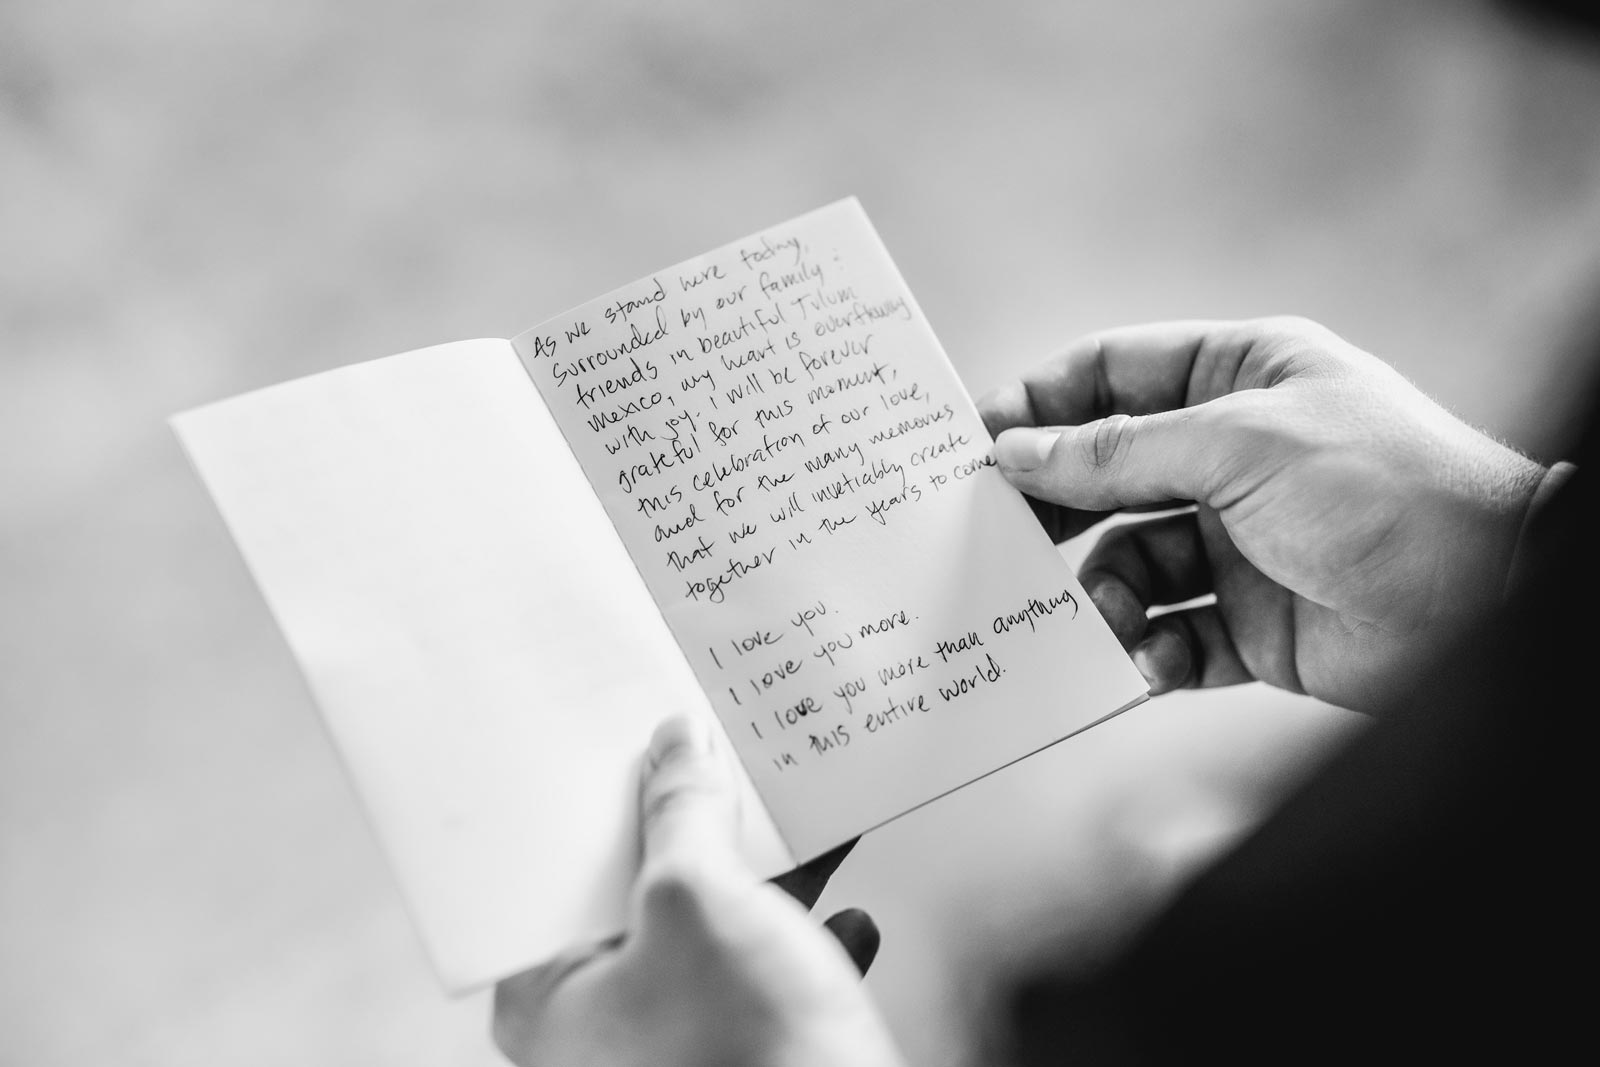 As we stand here today,
surrounded by our family :
friends in beautiful Tulum
Mexico, my heart is overflowing
with joy. I will be forever
grateful for this moment,
this celebration of our love,
and for the many memories
that we will invetiably create
together in the years to come
I love you.
I love you more.
I love you more than anything
in this entire world.